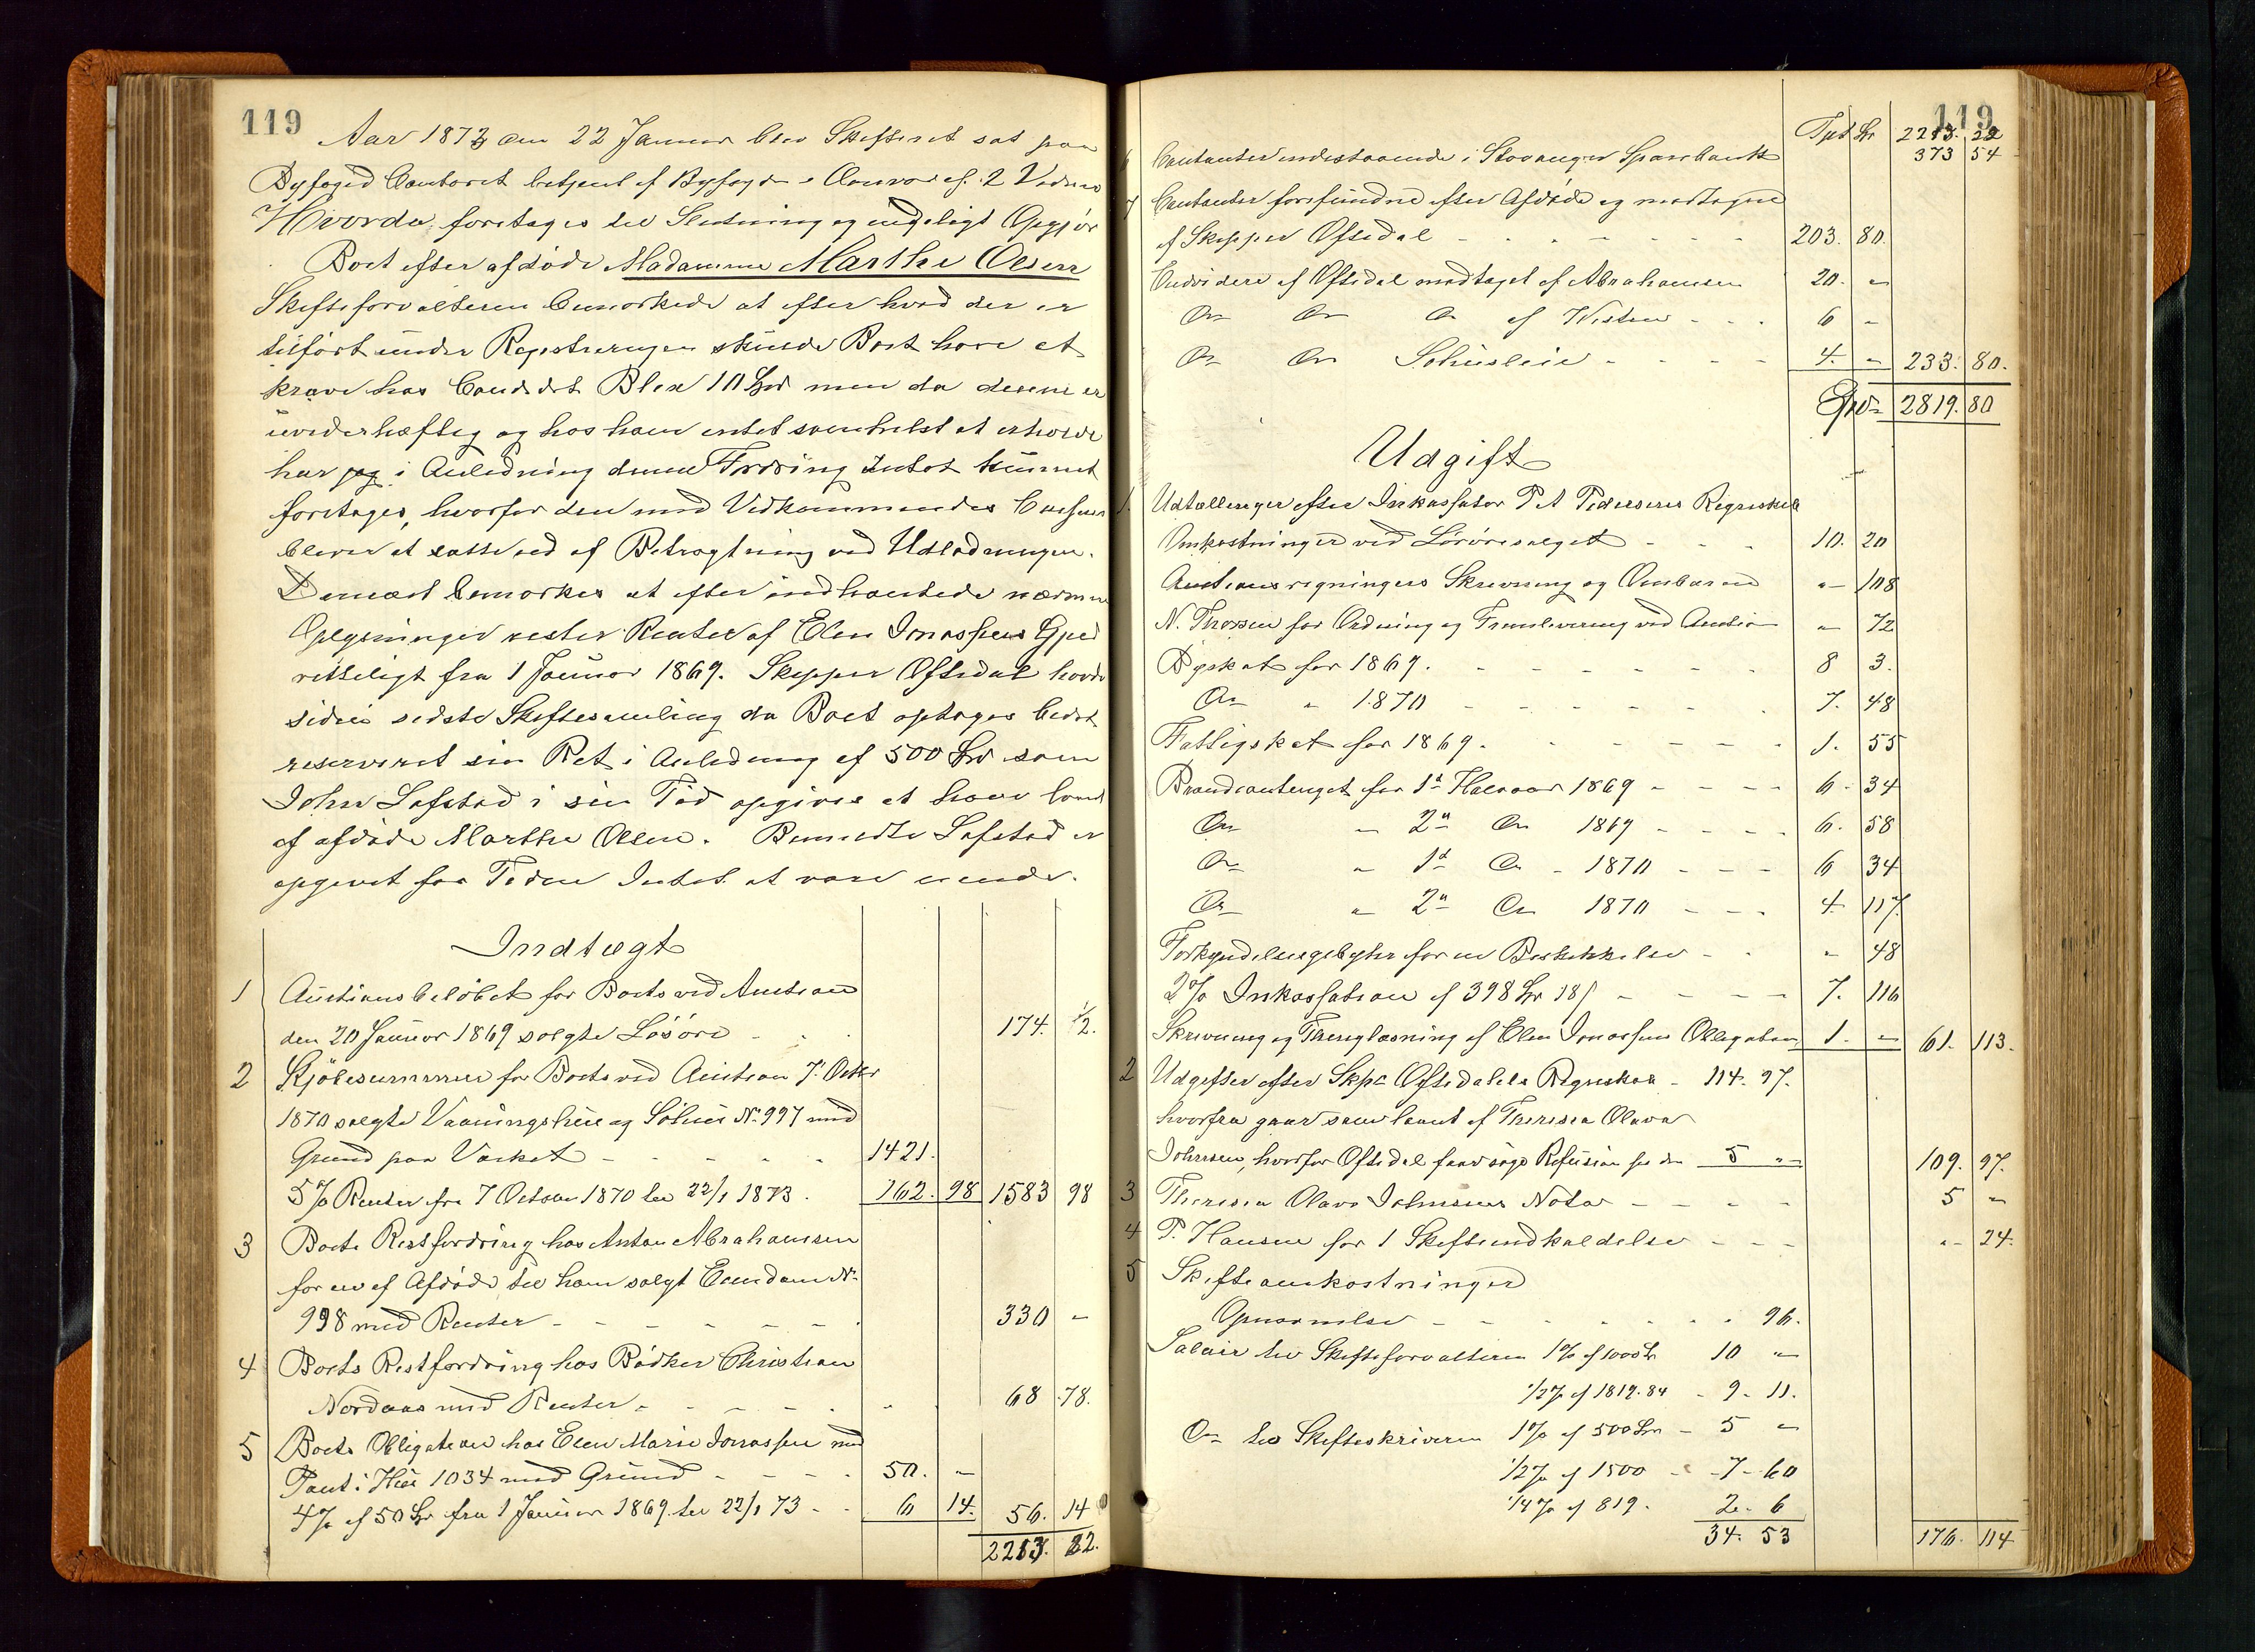 119
Aar 1873 den 22 Januar blev Skifteret sat paa
Byfoged Contoret betjent af Byfogden i Overvær af 2 Vidner
Hvorda foretoges til Slutning og endeligt Opgjör
Boet efter afdöde Madamme Marthe Olsen
Skifteforvalteren bemærkede at efter hvad der er
tilfört under Registreringen skulde Boet have et
krav hos Candidat Blix 10 Spd men da denne er
uvederhæftig og hos ham intet somhelst at erholde
har jeg i Anledning denne Fordring Intet kunnet
foretages, hvorfor den med Vedkommendes Consens
bliver at sætte ud af Betragtning ved Udlodningen.
Dernæst bemærkes at efter indhentede nærmere
Oplysninger rester Renter af Elen Jonassens Gjeld
retteligt fra 1 Januar 1869. Skipper Oftedal havde
siden sidste Skiftesamling da Boet optoges bedet
reserveret sin Ret i Anledning af 500 Spd som
John Lofstad i sin Tid opgives at have laant
af afdöde Marthe Olsen. Bemeldte Lofstad er
opgivet for Tiden Intet at være eiende.
Indtægt
1 Auctionsbelöbet for Boets ved Auction
den 20 Januar 1869 solgte Lösöre - - 174. 1/2.
2 Kjöbesummen for Boets ved Auction 7 Octbr
1870 solgte Vaaningshuus og Söhuus No 997 med
Grund paa Værket - - - - - 1421.
5 % Renter fra 7 October 1870 til 22/1 1873. 162. 98 1583 98
3 Boets Restfordring hos Anton Abrahamsen
for en af Afdöde til ham solgt Eiendom No
998 med Renter - - - - - - 330 -
4 Boets Restfordring hos Bödker Christian
Nordaas med Renter - - - - - 68 78.
5 Boets Obligation hos Elen Marie Jonassen med
Pant i Huus 1034 med Grund - - - 50. -
4% af 50 Spd fra 1 Januar 1869 til 22/1 73 - - 6 14. 56. 14
2213. 22.
119
Spd 2213. 22
6 Contanter indestaaende i Stavanger Sparebank 373 54
7 Contanter forefundne efter Afdöde og modtagne
af Skipper Oftedal - - - - - - 203. 80.
Endvidere af Oftedal modtaget af Abrahamsen 20. -
Do Do Do af - - - 6 -
Do Do Söhusleie - - - - 4. - 233. 80.
Spd 2819. 80
Udgift
1. Udtællinger efter Inkassator P A Pedersens Regnskab
Omkostninger ved Lösöresalget - - - 10. 20
Auctionsregningens Skrivning og Ombæren " 108
N. Thorsen for Ordning og Fremlevering ved Auction " 72
Byskat for 1869. - - - - - - 8 3.
Do " 1870 - - - - - - 7. 48
Fattigskat for 1869. - - - - - - 1. 55
Brandcontingent for 1ste Halvaar 1869 - - - - 6. 34
Do " 2det Do 1869 - - - - 6. 58
Do " 1ste Do - 1870 - - - 6 34
Do " 2det Do 1870 - - - 4 117
Forkyndelsesgebyhr for en Beskikkelse - - " 48
2% Inkassation af 398 Spd 18 s - - - - 7. 116
Skrivning og Thinglæsning af Elen Jonassens Obligation 1. - 61. 113.
2 Udgifter efter Skpr Oftedals Regnskab - 114. 97.
hvorfra gaar som laant af Theresia Olava
Johnsen, hvorfor Oftedal faar söge Refusion for den 5 " 109. 97.
3 Theresia Olava Johnsens Nota - - - - 5 "
4 P. Hansen for 1 Skifteindkaldelse - - - " 24.
5 Skifteomkostninger
Opnævnelse - - - - - - 96.
Salair til Skifteforvalteren 1% af 1000 Spd 10 "
1/2% af 1819.84 - 9. 11.
Do til Skifteskriveren 1% af 500 Spd - 5 "
1/2% af 1500 - - 7 - 60
1/4% af 819. 2. 6
34. 53 176. 114